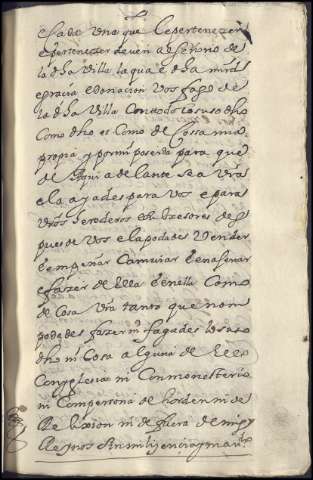 esado una que le pertenezen
e pertenezer deven al señorio de
la dha villa la qual dha mrd
e gracia e donacion vos fago de
la dha villa con todo lo suso dho
como dho es como de cossa mia
propia y por mi poseida para que
de aqui adelante sea vra
e la ayades para vos e para
vros herederos e subzesores des
pues de vos e la podades vender
e empeñar camviar e enajenar
e fazer de ella e en ella como
de cosa vra tanto que non
podades fazer ni fagades lo suso
dho ni cosa alguna de ello
con yglesia ni con monesterio
ni con persona de horden ni de
relixion ni de fuera de mis
reynos sin mi lizencia y man